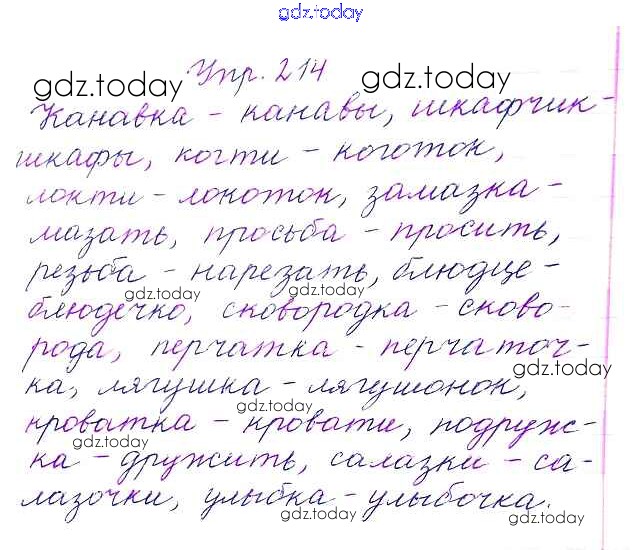 gdz.today
Упр. 214
gdz.today gdz.today
Канавка - канавы, шкафчик -
шкафы, когти - коготок,
локти - локоток, замазка -
мазать, просьба - просить,
резьба - нарезать, блюдце -
gdz.today gdz.today
блюдечко, сковородка - сково-
рода, перчатка - перчаточ-
gdz.today
ка, лягушка - лягушонок,
gdz.today
кроватка - кровати, подруж-
gdz.today
ка - дружить, салазки - са-
лазочки, улыбка - улыбочка.
gdz.today gdz.today